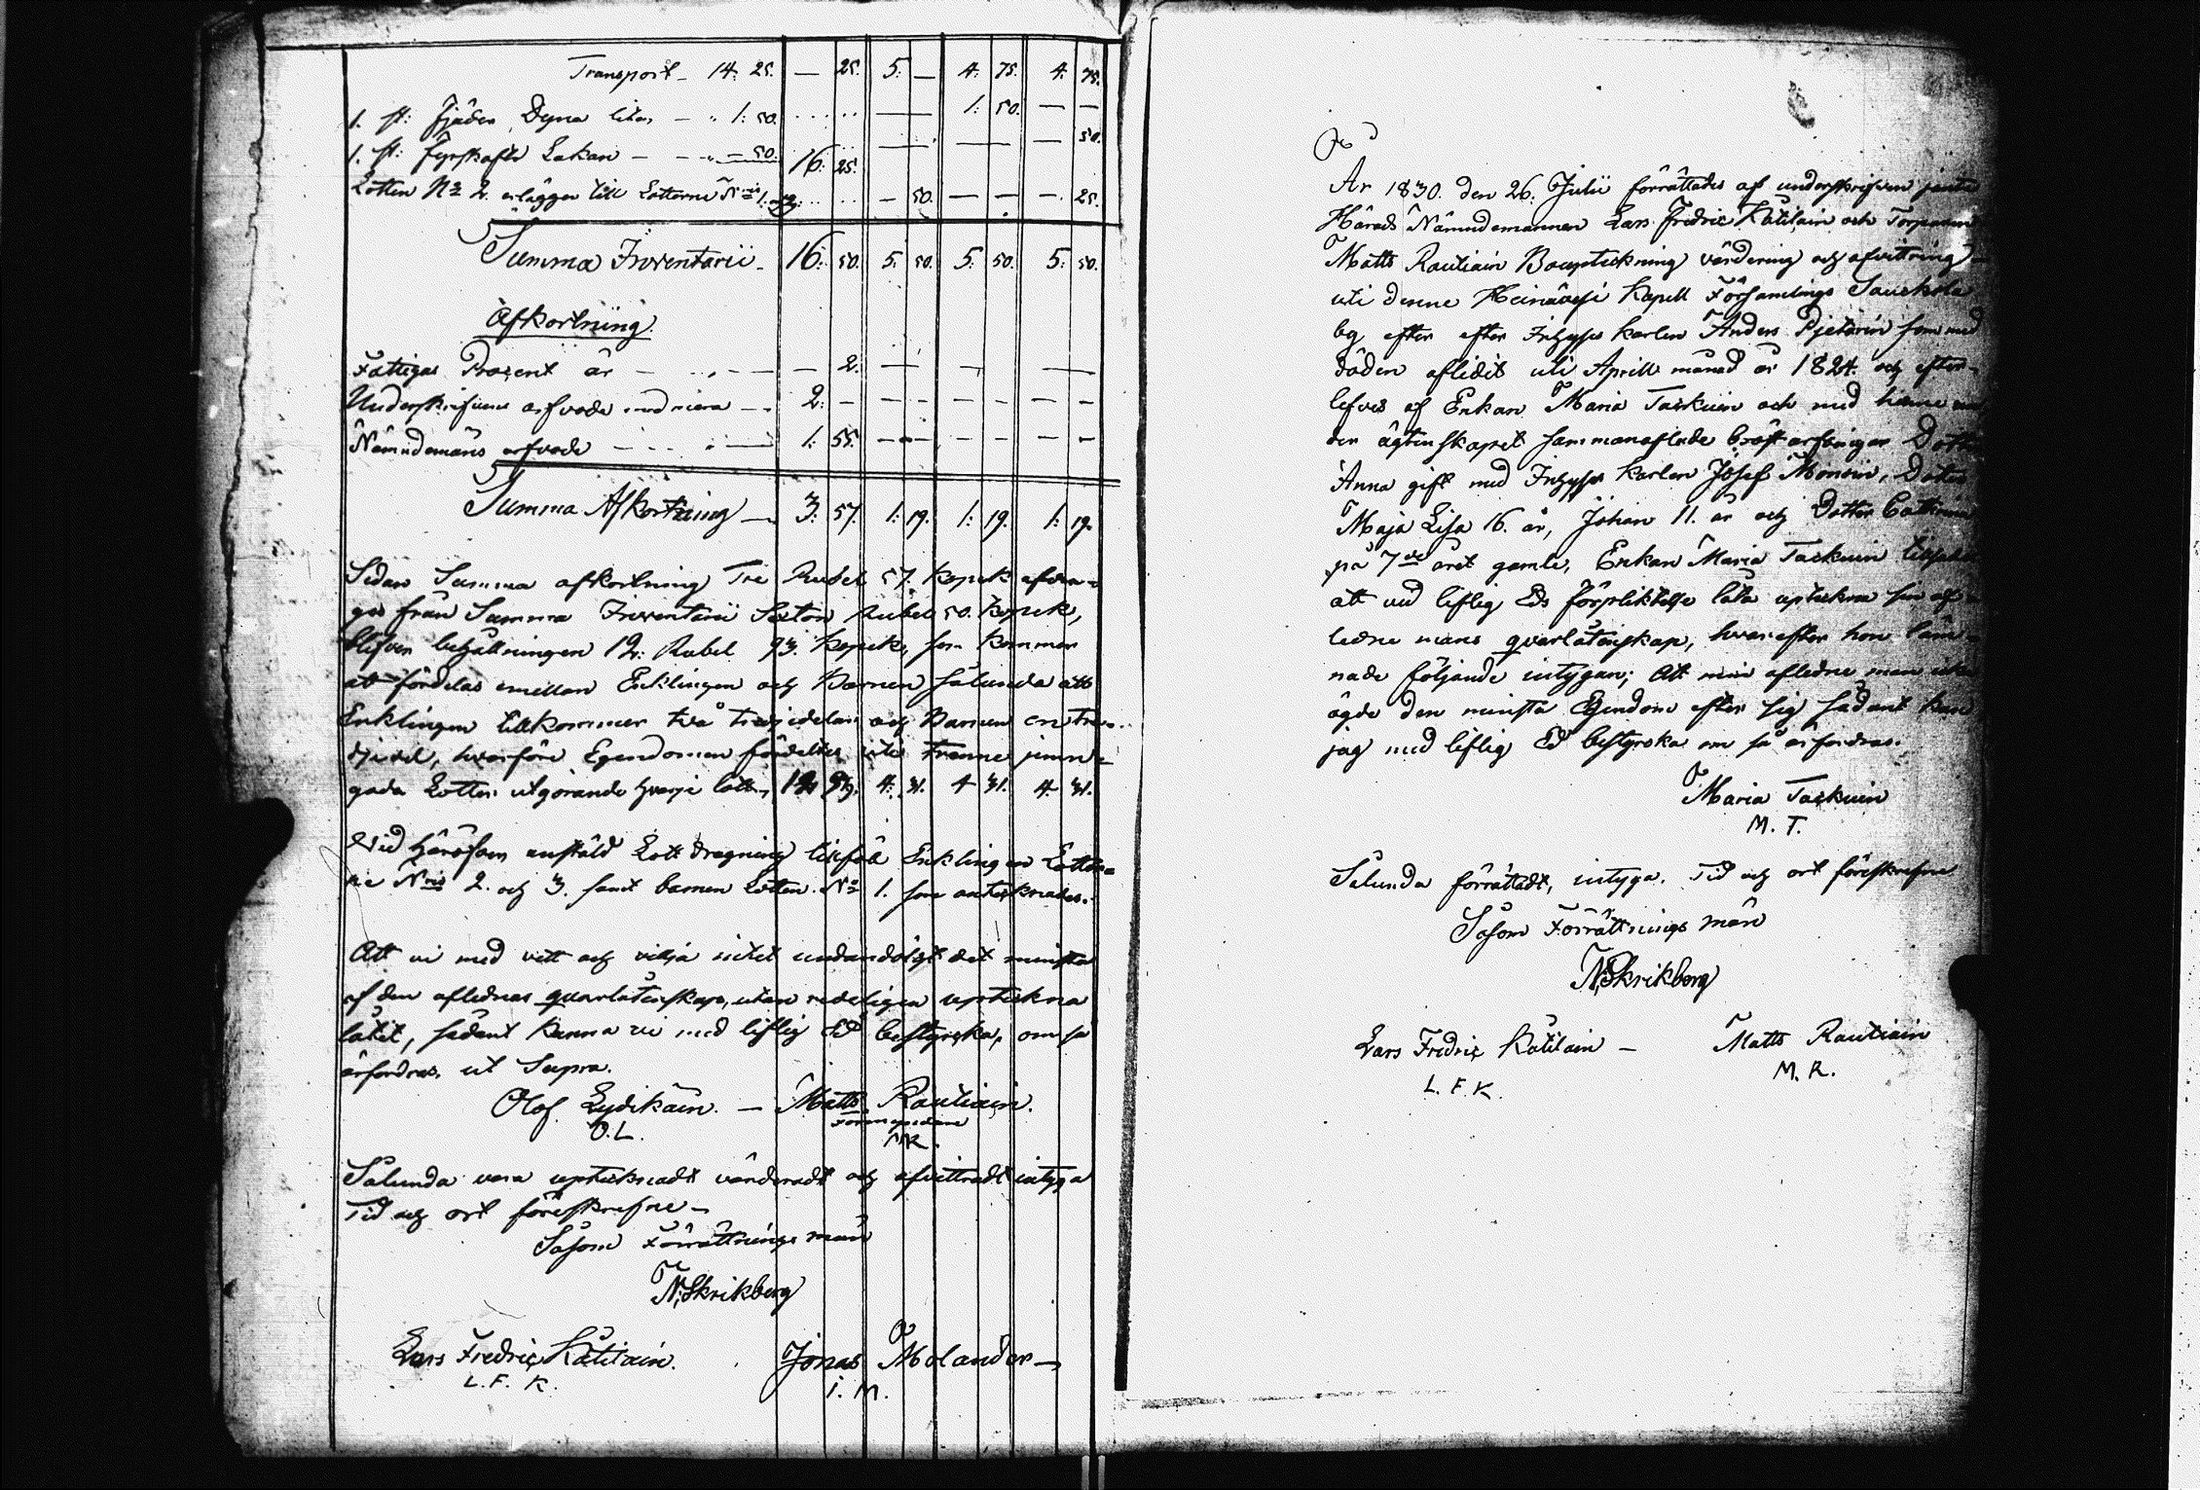 Transport - 14: 25. — 25. 5: — 4: 75. 4: 75.
1. st: fjäder Dyna liten — " 1: 50. — 1: 50. — —
1. st: fyrskaft Lakan — - " — 50. 16: 25. — — — 50.
Lotten No 2. erlägger till Lotterne Nris 1. och 3. — 50. — — — 25.
Summa Inventarii - 16: 50. 5: 50. 5: 50. 5: 50.
Afkortning
Fattigas Procent är — — 2. — — —
Underskrifvens arfvode med niera — 2: — — — — — — —
Nämndemäns arfvode — 1: 55. — — — — — —
Summa Afkortning — 3: 57. 1: 19. 1: 19. 1: 19.
Sedan Summa afkortning Tre Rubel 57. Kopek afdra-
ges från Summa Inventarii Sexton Rubel 50. Kopek,
blifver behållningen 12. Rubel 93. Kopek, som kommer
att fördelas emellan Enklingen och Barnen sålunda att
Enklingen tillkommer två tredjedelar och Barnen en tre-
djedel, hvarföre Egendomen fördeltes uti Trenne jemn-
goda Lotter utgörande hvarje lott, 12 93. 4: 31. 4 31. 4. 31.
Vid häröfver anstäld Lott dragning tillföll Enklingen Lotter-
ne Nris 2. och 3. samt barnen Lotten No 1. som antecknades.
Att vi med vett och vilja intet undandolgt det minsta
af den aflednas qvarlåtenskap, utan redeligen upteckna
låtit, sådant kunna vi med liflig Ed bestyrka, om så
ärfordras, ut Supra.
Olof Lydikäin. — Matts Rautiain.
Förmyndare
O. L. M R.
Sålunda vara upteknadt värderadt och afvittradt intyga
Tid och ort föreskrefne —
Såsom Förrättnings män
N. Skrikberg
Lars Fredric Katilain. Jonas Molander —
L. F. K. J. M.
År 1830. den 26. Julii förrättades af underskrifven jemte
Härads Nämndemannen Lars Fredric Katilain och Torparen
Matts Rautiain Bouptekning värdering och afvittring
uti denne Heinävesi Kapell Församlings
by efter efter Inhyses Karlen Anders Pjetarin som med
döden aflidit uti Aprill månad år 1824. och efter-
lefves af Enkan Maria Taskuin och med henne
den ägtenskapet sammanaflade bröst arfvingar
Anna gift med Inhyses Karlen Josef Mononin, Dotter
Maja Lisa 16. år, Johan 11. år och Dotter Cathrina
på 7de året gamle, Enkan Maria Taskuin tillsades
att vid liflig Eds förpliktelse låta upteckna sin af-
ledne mans qvarlåtenskap, hvarefter hon läm-
nade följande intygan; Att min afledne man icke
ägde den minsta Egendom efter sig sådant kan
jag med liflig Ed bestyrka om så ärfordras.
Maria Taskuin
M. T.
Sålunda förrättadt, intyga. Tid och ort föreskrefne
Såsom Förrättnings män
N. Skrikberg
Lars Fredric Katilain — Matts Rautiain
L. F. K. M. R.